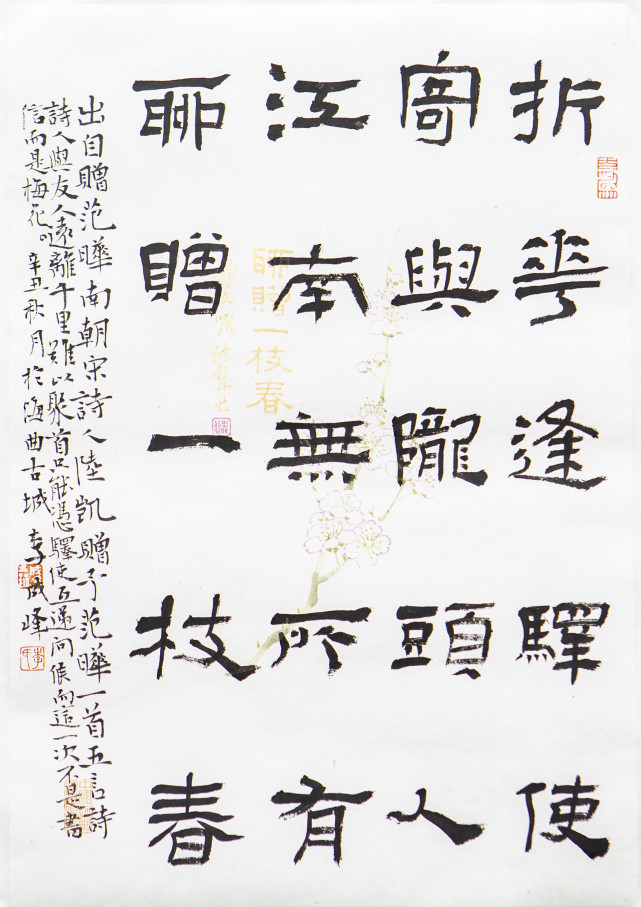 折花逢驛使
寄與隴頭人
江南無所有
聊贈一枝春
出自贈范曄南朝宋詩人陸凱贈予范曄一首五言詩
詩人與友人遠離千里難以聚首只能憑驛使互遞問候而這一次不是書
信而是梅花。辛丑秋月於渔曲古城 李成峰
聊贈一枝春